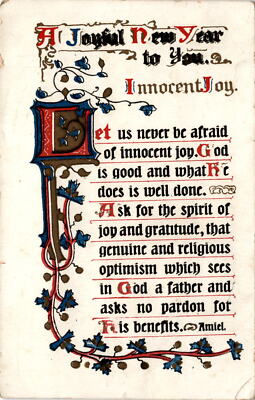 A Joyful New Year
to You.
Innocent Joy.
Let us never be afraid
of innocent joy. God
is good and what He
does is well done.
Ask for the spirit of
joy and gratitude, that
genuine and religious
optimism which sees
in God a father and
asks no pardon for
His benefits. Amiel.